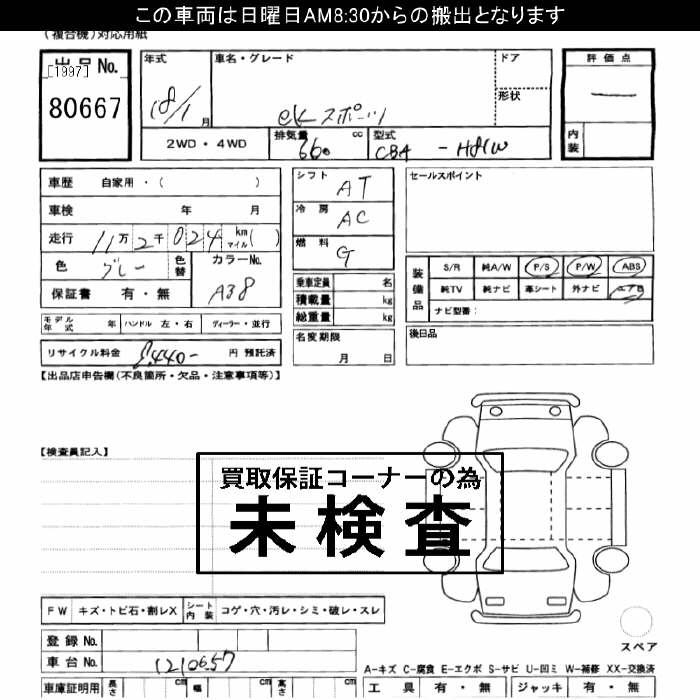 この車両は日曜日AM8:30からの搬出となります
(複合機)対応用紙
出品No.
[1997]
80667
年式
18/1月
車名・グレード
ekスポーツ
ドア
形状
2WD・4WD
排気量 660 cc
型式 CBA - H81W
評価点
内装
車歴 自家用・( )
車検 年 月
走行 11万2千024 km マイル( )
色 グレー 色替
カラーNo. A38
保証書 有・無
シフト AT
冷房 AC
燃料 G
乗車定員 名
積載量 kg
総重量 kg
名変期限
月 日
セールスポイント
装備品
S/R 純A/W P/S P/W ABS
純TV 純ナビ 革シート 外ナビ
ナビ型番:
後日品
モデル年式 年 ハンドル 左・右 ディーラー・並行
リサイクル料金 8,440- 円 預託済
【出品店申告欄(不良箇所・欠品・注意事項等)】
【検査員記入】
買取保証コーナーの為
未検査
FW キズ・トビ石・割レX シート内装 コゲ・穴・汚レ・シミ・破レ・スレ
登録No.
車台No. 1210657
車庫証明用 長さ cm 幅 cm 高さ cm
スペア
A-キズ C-腐食 E-エクボ S-サビ U-凹ミ W-補修 XX-交換済
工具 有・無 ジャッキ 有・無